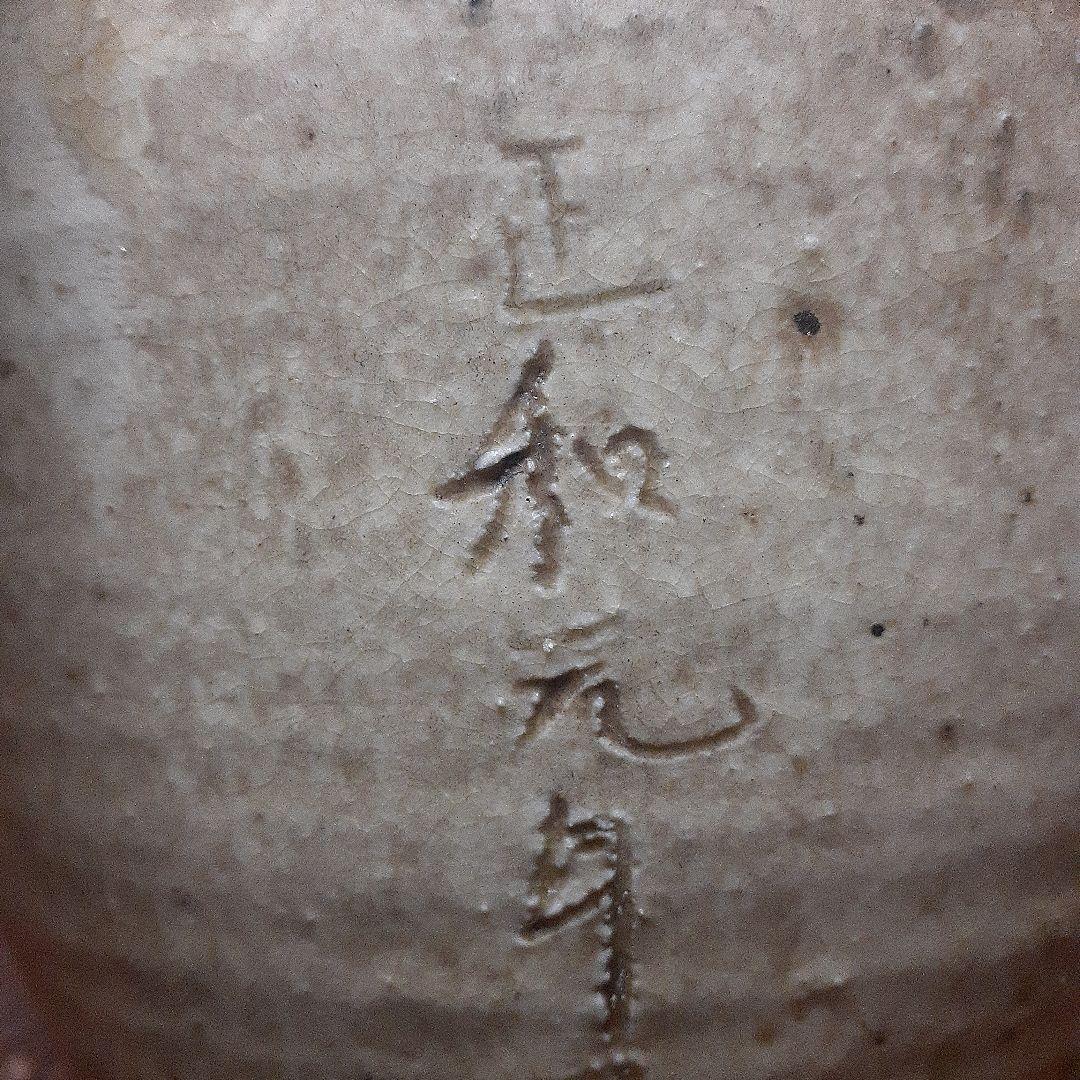 正和元年